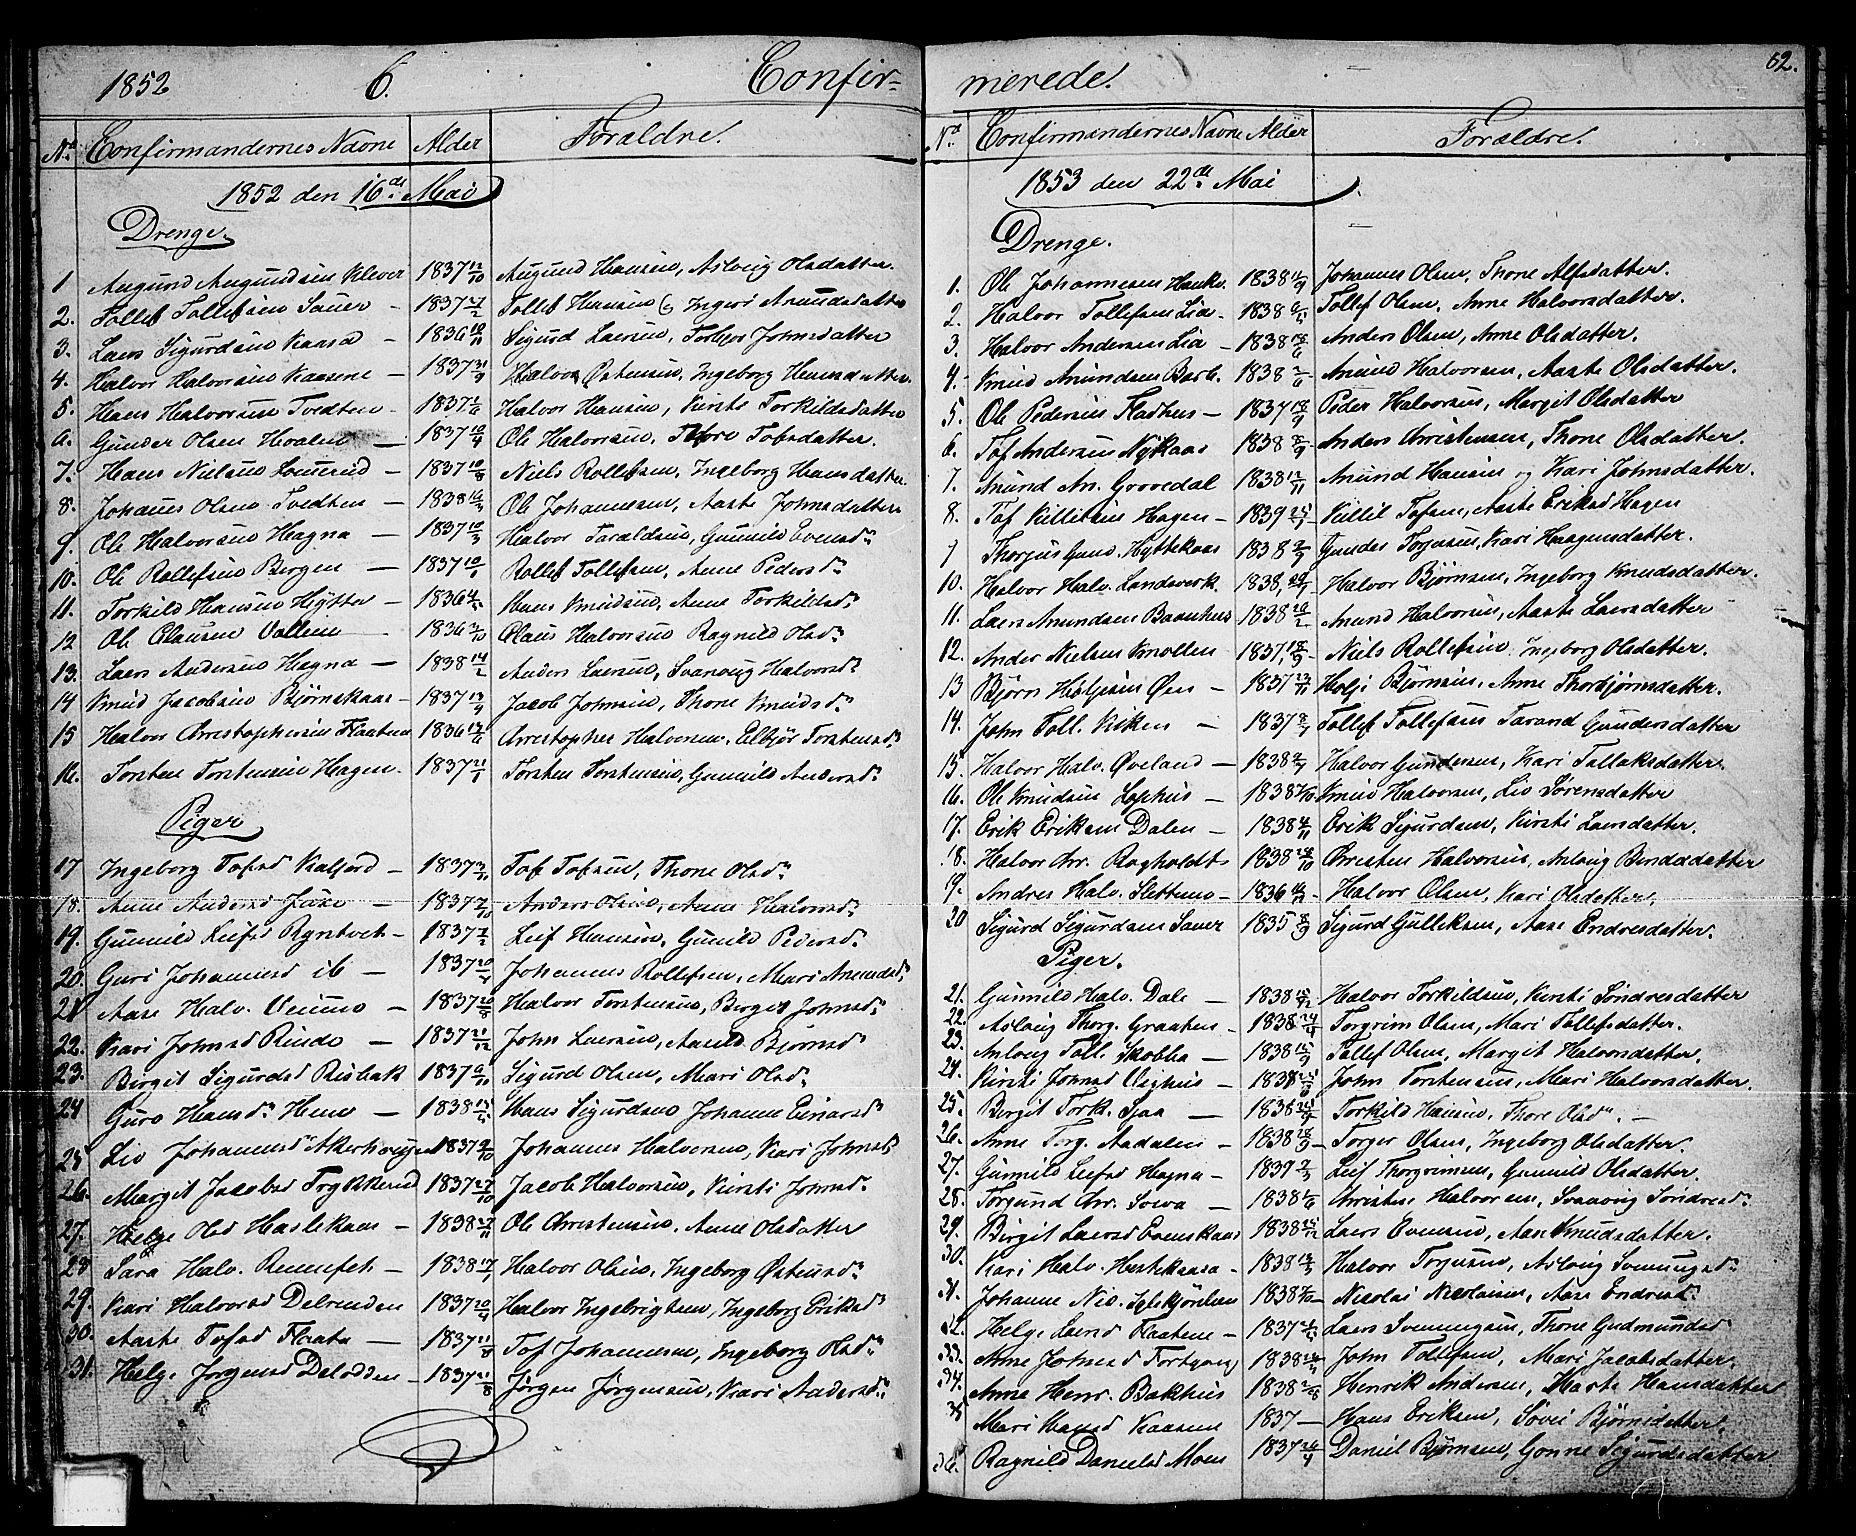 1852 6. Confir-
Nº Confirmandernes Navne Alder Foraldre.
1852 den 16de Mai
Drenge.
1 Augund Augundsen Klever 1837 12/10 Augund Hansen, Aslaug Olsdatter.
2. Tollef Tollefsen Sauer - 1837 27/2 Tollef Hansen Ingeri Amundsdatter
3. Laers Sigurdsen Kaasa - 1836 10/11 Sigurd Laersen, Torbjør Johnsdatter
4. Halvor Halvorsen Kaasene - 1837 21/9 Halvor Østensen, Ingeborg Hansdatter.
5. Hans Halvorsen Tvedten - 1837 1/6 Halvor Hansen, Kirsti Torkildsdatter
6. Gunder Olsen Hvalen - 1837 10/4 Ole Halvorsen, Thore Tofsdatter.
7. Hans Nielsen 1837 10/8 Niels Rollefsen, Ingeborg Hansdatter.
8. Johanes Olsen Tvedten - 1838 Ole Johannesen, Aaste Johnsdatter
9. Ole Halvorsen Hagna - 1837 10/3 Halvor Taraldsen, Gunnild Evensd.
10. Ole Rollefsen Bergen - 1837 10/1 Rollef Tollefsen, Anne Pedersd.
11. Torkild Hansen Hytter - 1836 Hans Knudsen, Anne Torkildsd.
12 Ole Clausen Vallem 1836 2/10 Claus Halvorsen Ragnild Olsd.
13. Laers Andersen Hagna - 1838 14/2 Anders Laersen, Svanaug Halvorsd.
14 Knud Jacobsen Bjørnekaas - 1837 13/9 Jacob Johnsen, Thone Knudsd.
15 Halvor Christophersen Flaatten 1836 13/6 Christopher Halvorsen, Elbjør Torstensd.
16. Torsten Torstensen Hagen. 1837 21/1 Torsten Torstensen, Gunnild Andersd.
Piger
17 Ingeborg Tofsd Kalford - 1837 Tof Tofsen, Thone Olsd.
18. Anne Andersd - 1837 Anders Olsen, Anne Halvorsd.
19. Gunnild Leifsd Ryntvet - 1837 Leif Hansen, Gunild Pedersd.
20. Guri Johannesd ib - 1837 20/4 Johannes Rollefsen, Mari Anundsd.
21 Aase Halv. - 1837 Halvor Torstensen, Birget Johnsd.
22. Kari Johnsd Rinde - 1837 21/12 John Laersen, Aasild Bjørnsd.
23. Birgit Sigurdsd Risbak 1837 9/11 Sigurd Olsen, Mari Olsd.
24 Guro Hansd. Hem - 1838 Hans Sigurdsen Johanne Einarsd.
25 Liv Johannesd Akerhougen 1837 9/10 Johannes Halvorsen, Kari Johnsd.
26. Margit Jacobsd Trykkerud 1837 27/10 Jacob Halvorsen, Kirsti Johnsd.
27. Helge Olsd Haslekaas - 1838 17/11 Ole Christensen, Anne Olsdatter
28 Sara Halv. - 1838 Halvor Olsen, Ingeborg Østensd.
29. Kari Halvorsd Delrenden 1837 20/4 Halvor Ingebrigtsen, Ingeborg Eriksd.
30. Aaste Tofsd Flaata - 1837 11/8 Tof Johannesen, Ingeborg Olsd.
31. Helge Jørgensd Delodden - 1837 21/8 Jørgen Jørgensen, Kari Andersd.
merede. 62.
Nº Confirmandernes Navne Alder Foraldre.
1853 den 22de Mai
Drenge.
1. Ole Johannesen 1838 11/9 Johannes Olsen, Thone Alfsdatter.
2. Halvor Tollefsen Lia - 1838 Tollef Olsen, Anne Halvorsdatter.
3. Halvor Andersen Lia - 1838 Anders Olsen, Anne Olsdatter.
4. Knud Anundsen 1838 2/6 Anund Halvorsen, Aaste Olsdatter.
5. Ole Pedersen - 1837 Peder Halvorsen, Margit Olsdatter
6. Tof Andersen Nykaas 1838 Anders Christensen, Thone Olsdatter.
7. Anund An. Goovedal 1838 12/11 Anund Hansen og Kari Johnsdatter.
8. Tof Killilsen Hagen - 1839 Killil Tofsen, Aaste Eriksd Hagen
9 Thorjus Gund. Hyttekaas 1838 Gunder Torjusen, Kari Haagensdatter.
10. Halvor Halv. Landsverk. 1838, Halvor Bjørnsen, Ingeborg Knudsdatter.
11. Laers Anundsen Baanhus 1838 Anund Halvorsen, Aaste Laersdatter
12. Ander Nielsen Knollen 1837, 18/9 Niels Rollefsen Ingeborg Olsdatter.
13 Bjørn Holjesen Øen - 1837 23/11 Holje Bjørnsen, Anne Thorbjørnsdatter.
14. John Toll. Kiken - 1837 Tollef Tollefsen Tarand Gundersdatter
15. Halvor Halv. Øveland - 1838 Halvor Gundersen, Kari Tallaksdatter.
16. Ole Knudsen Lophus - 1838 Knud Halvorsen, Liv Sørensdatter
17. Erik Eriksen Dalen - 1838 4/11 Erik Sigurdsen, Kirsti Laersdatter.
18. Halvor Chr. Ragholdt 1838 Christen Halvorsen, Aslaug
19. Andres Halv. Slettemo - 1836 Halvor Olsen, Kari Olsdatter.
20 Sigurd Sigurdsen Sauer 1835 Sigurd Gulleksen, Aase Endresdatter.
Piger.
21. Gunnild Halv. Dale - 1838 Halvor Torkildsen, Kirsti Søndresdatter
22. Aslaug Thorg. Graaten - 1838 24/4 Torgrim Olsen, Mari Tollefsdatter.
23. Aslaug Toll. Skobba - 1838 15/9 Tollef Olsen, Margit Halvorsdatter.
24. Kirsti Johnsd Vighus - 1838 John Torstensen, Mari Halvorsdatter.
25. Birgit Tork. Sjaa - 1838 Torkild Hansen, Thore Olsd. -
26. Anne Torg. Aadalen - 1838 18/9 Torger Olsen, Ingeborg Olsdatter.
27. Gunnild Leifsd Hagna - 1839 2/3 Leif Thorgrimsen, Gunnild Olsdatter.
28. Torgund Chr. Sova - 1838 1/6 Christen Halvorsen, Svanaug Sondresd.
29. Birgit Laersd Evenskaas 1838 Laers Evensen, Aase Knudsdatter.
30. Kari Halv. Heskekaasa - 1838 Halvor Torjusen, Aslaug Svenungsd.
31. Johanne Nic. 1838 Nicolai Nicolaisen, Aase Endresd.
32. Helge Laersd Flaatene - 1837 Laers Svenungsen, Thone Gudmundsd
33. Anne Johnsd 1838 John Tollefsen, Mari Jacobsdatter.
34. Anne Henr. Bakhus 1838 Henrik Andersen, Marte Hansdatter
35 Mari Hansd Kaasene 1837 - Hans Eriksen, Søvei Bjørnsdatter.
36. Ragnild Danielsd Moen 1837 26/4 Daniel Bjørnsen, Gonne Sigurdsdatter